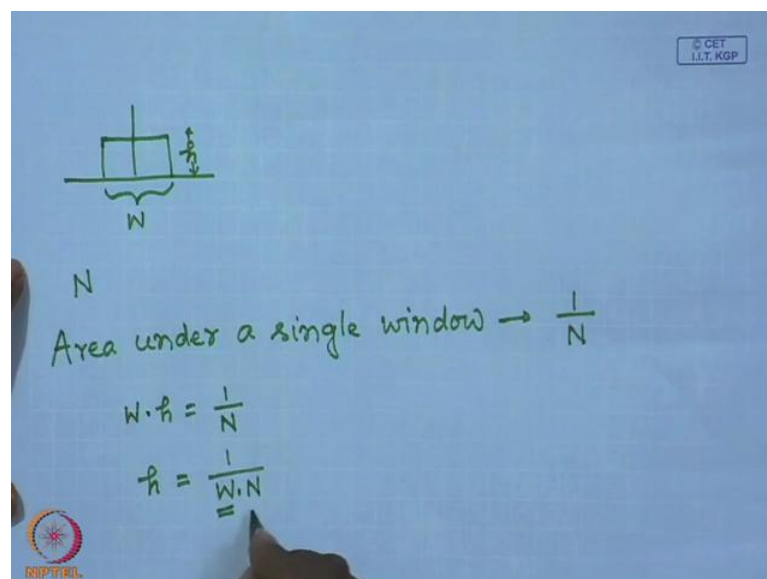 © CET
I.I.T. KGP
h
W
N
Area under a single window → 1/N
W.h = 1/N
h = 1/W.N
NPTEL